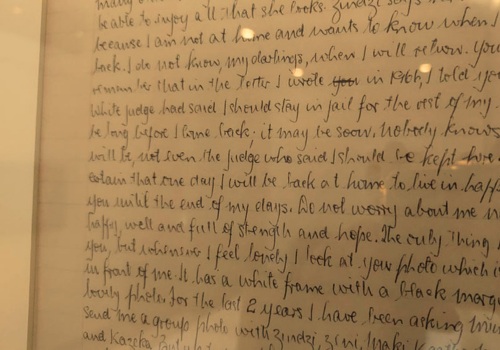 be able to enjoy all that she cooks. Zindzi says
because I am not at home and wants to know when I
back. I do not know, my darlings, when I will return. You
remember that in the letter I wrote you in 1966, I told you
White judge had said I should stay in jail for the rest of my
be long before I come back; it may be soon. Nobody knows
will be, not even the judge who said I should be kept here
certain that one day I will be back at home to live in happ
you until the end of my days. Do not worry about me n
happy, well and full of strength and hope. The only thing
you, but whenever I feel lonely I look at your photo which i
in front of me. It has a white frame with a black marg
lovely photo. For the last 2 years I have been asking Mum
send me a group photo with Zindzi, Zeni, Maki, K
and Kazeka